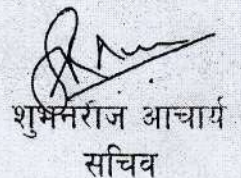 शुभनराज आचार्य
सचिव